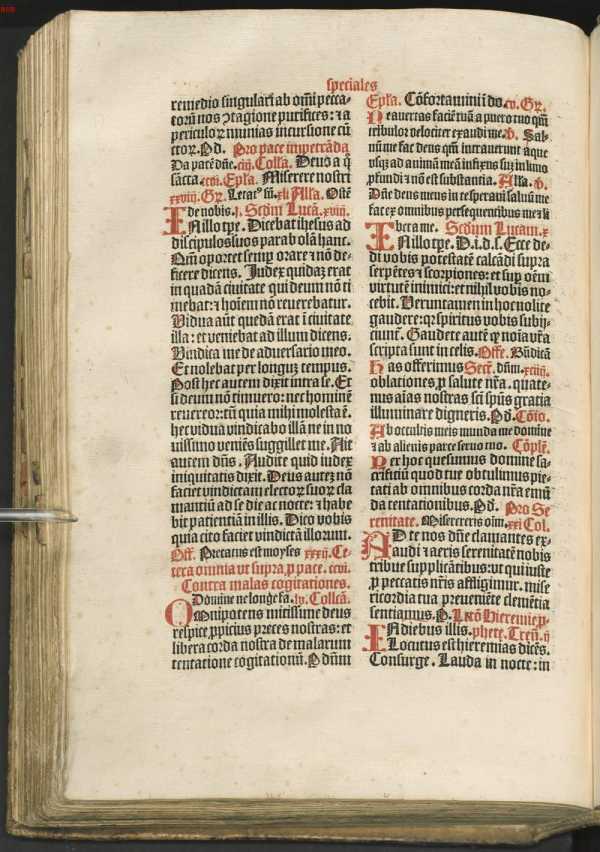 speciales
remedio singulari ab om̄i pecca-
torū nos ↄtagione purifices: ⁊ a
periculoꝝ mūnias incursione cū
ctoꝝ. P̄d. Pro pace impetrāda
Da pacē dn̄e. ciij. Coll̄a. Deus a q̄
sācta. ccvi. Ep̄la. Miserere nostri
xxviij. Gr̄. Letat⁹ sū. xli All̄a. Ostē
de nobis. j. Scdm̄ Lucā. xviij.
IN illo tp̄e. Dicebat ihesus ad
discipulos suos parabolā hanc.
Qm̄ oportet semꝑ orare ⁊ nō de-
ficere dicens. Judex quidaʒ erat
in quadā ciuitate qui deum nō ti
mebat: ⁊ hoīem nō reuerebatur.
Vidua aūt quedā erat ī ciuitate
illa: et veniebat ad illum dicens.
Vindica me de aduersario meo.
Et nolebat per longuʒ tempus.
Post hec autem dixit intra se. Et
si deum nō timuero: nec hominē
reuereor: tn̄ quia mihi molesta ē.
hec vidua vindicabo illā ne in no
uissimo veniēs suggillet me. Ait
autem dn̄s. Audite quid iudex
iniquitatis dixit. Deus auteʒ nō
faciet vindictam electoꝝ suoꝝ cla
mantiū ad se die ac nocte: ⁊ habe
bit patientiā in illis. Dico vobis
quia cito faciet vindictā illorum.
Off. Precatus est moyses xxxij. Ce-
tera omnia vt supra ꝓ pace. ccvi.
Contra malas cogitationes.
Domine ne longe fa. lv. Collcā.
OMnipotens mitissime deus
respice ꝓpicius preces nostras: et
libera corda nostra de malarum
tentatione cogitationū. P̄ dn̄m
Ep̄la. Cōfortamini ī do. cv. Gr̄.
Ne auertas faciē tuā a puero tuo qm̄
tribulor velociter exaudi me. v̄. Sal-
uū me fac deus qm̄ intrauerunt aque
vsqʒ ad animā meā infixus suʒ in limo
ꝓfundi ⁊ nō est substantia. All̄a. v̄.
Dn̄e deus meus in te speraui saluū me
fac ex omnibus persequentibus me ⁊ li
bera me. Scdm̄ Lucam. x
IN illo tp̄e. D. i. d. s. Ecce de-
di vobis potestatē calcādi supra
serpētes ⁊ scorpiones: et suꝑ oēm
virtutē inimici: et nihil vobis no-
cebit. Veruntamen in hoc nolite
gaudere: qʒ spiritus vobis subij-
ciunt̄. Gaudete autē ꝙ noīa vr̄a
scripta sunt in celis. Offe. Bn̄dicā
Has offerimus Secr̄. dn̄m. xciiij.
oblationes ꝓ salute nr̄a. quate-
nus aīas nostras sct̄i sp̄us gratia
illuminare digneris. P̄d. Cōio.
Ab occultis meis munda me domine
⁊ ab alienis parce seruo tuo. Cōplē.
PEr hoc quesumus domine sa-
crificiū quod tue obtulimus pie-
tati ab omnibus corda nr̄a emū
da tentationibus. P̄d. Pro Se
renitate. Misereris oīm. xxi Col.
AD te nos dn̄e clamantes ex-
audi ⁊ aeris serenitatē nobis
tribue supplicātibus: vt qui iuste
ꝓ peccatis nr̄is affligimur. mise
ricordia tua preueniēte clemētia
sentiamus. P̄. Lct̄o Hieremie ꝓ-
IN diebus illis. phete. Tren̄. ij
Locutus est hieremias dicēs.
Consurge. Lauda in nocte: in